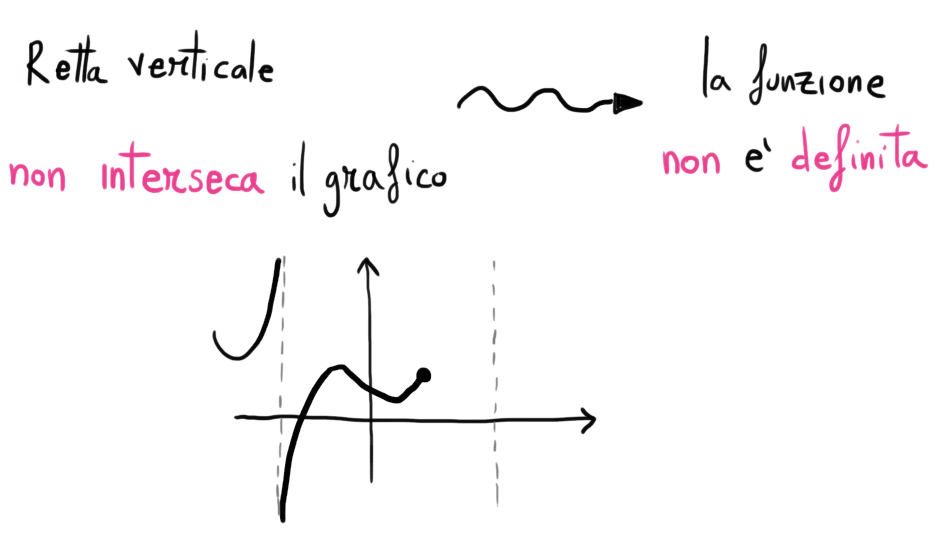 Retta verticale
non interseca il grafico
la funzione
non e' definita